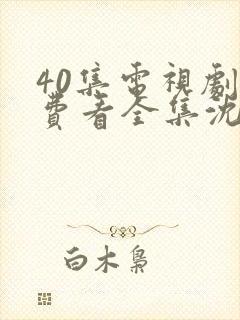 40集电視劇
費看全集沈
白木梟